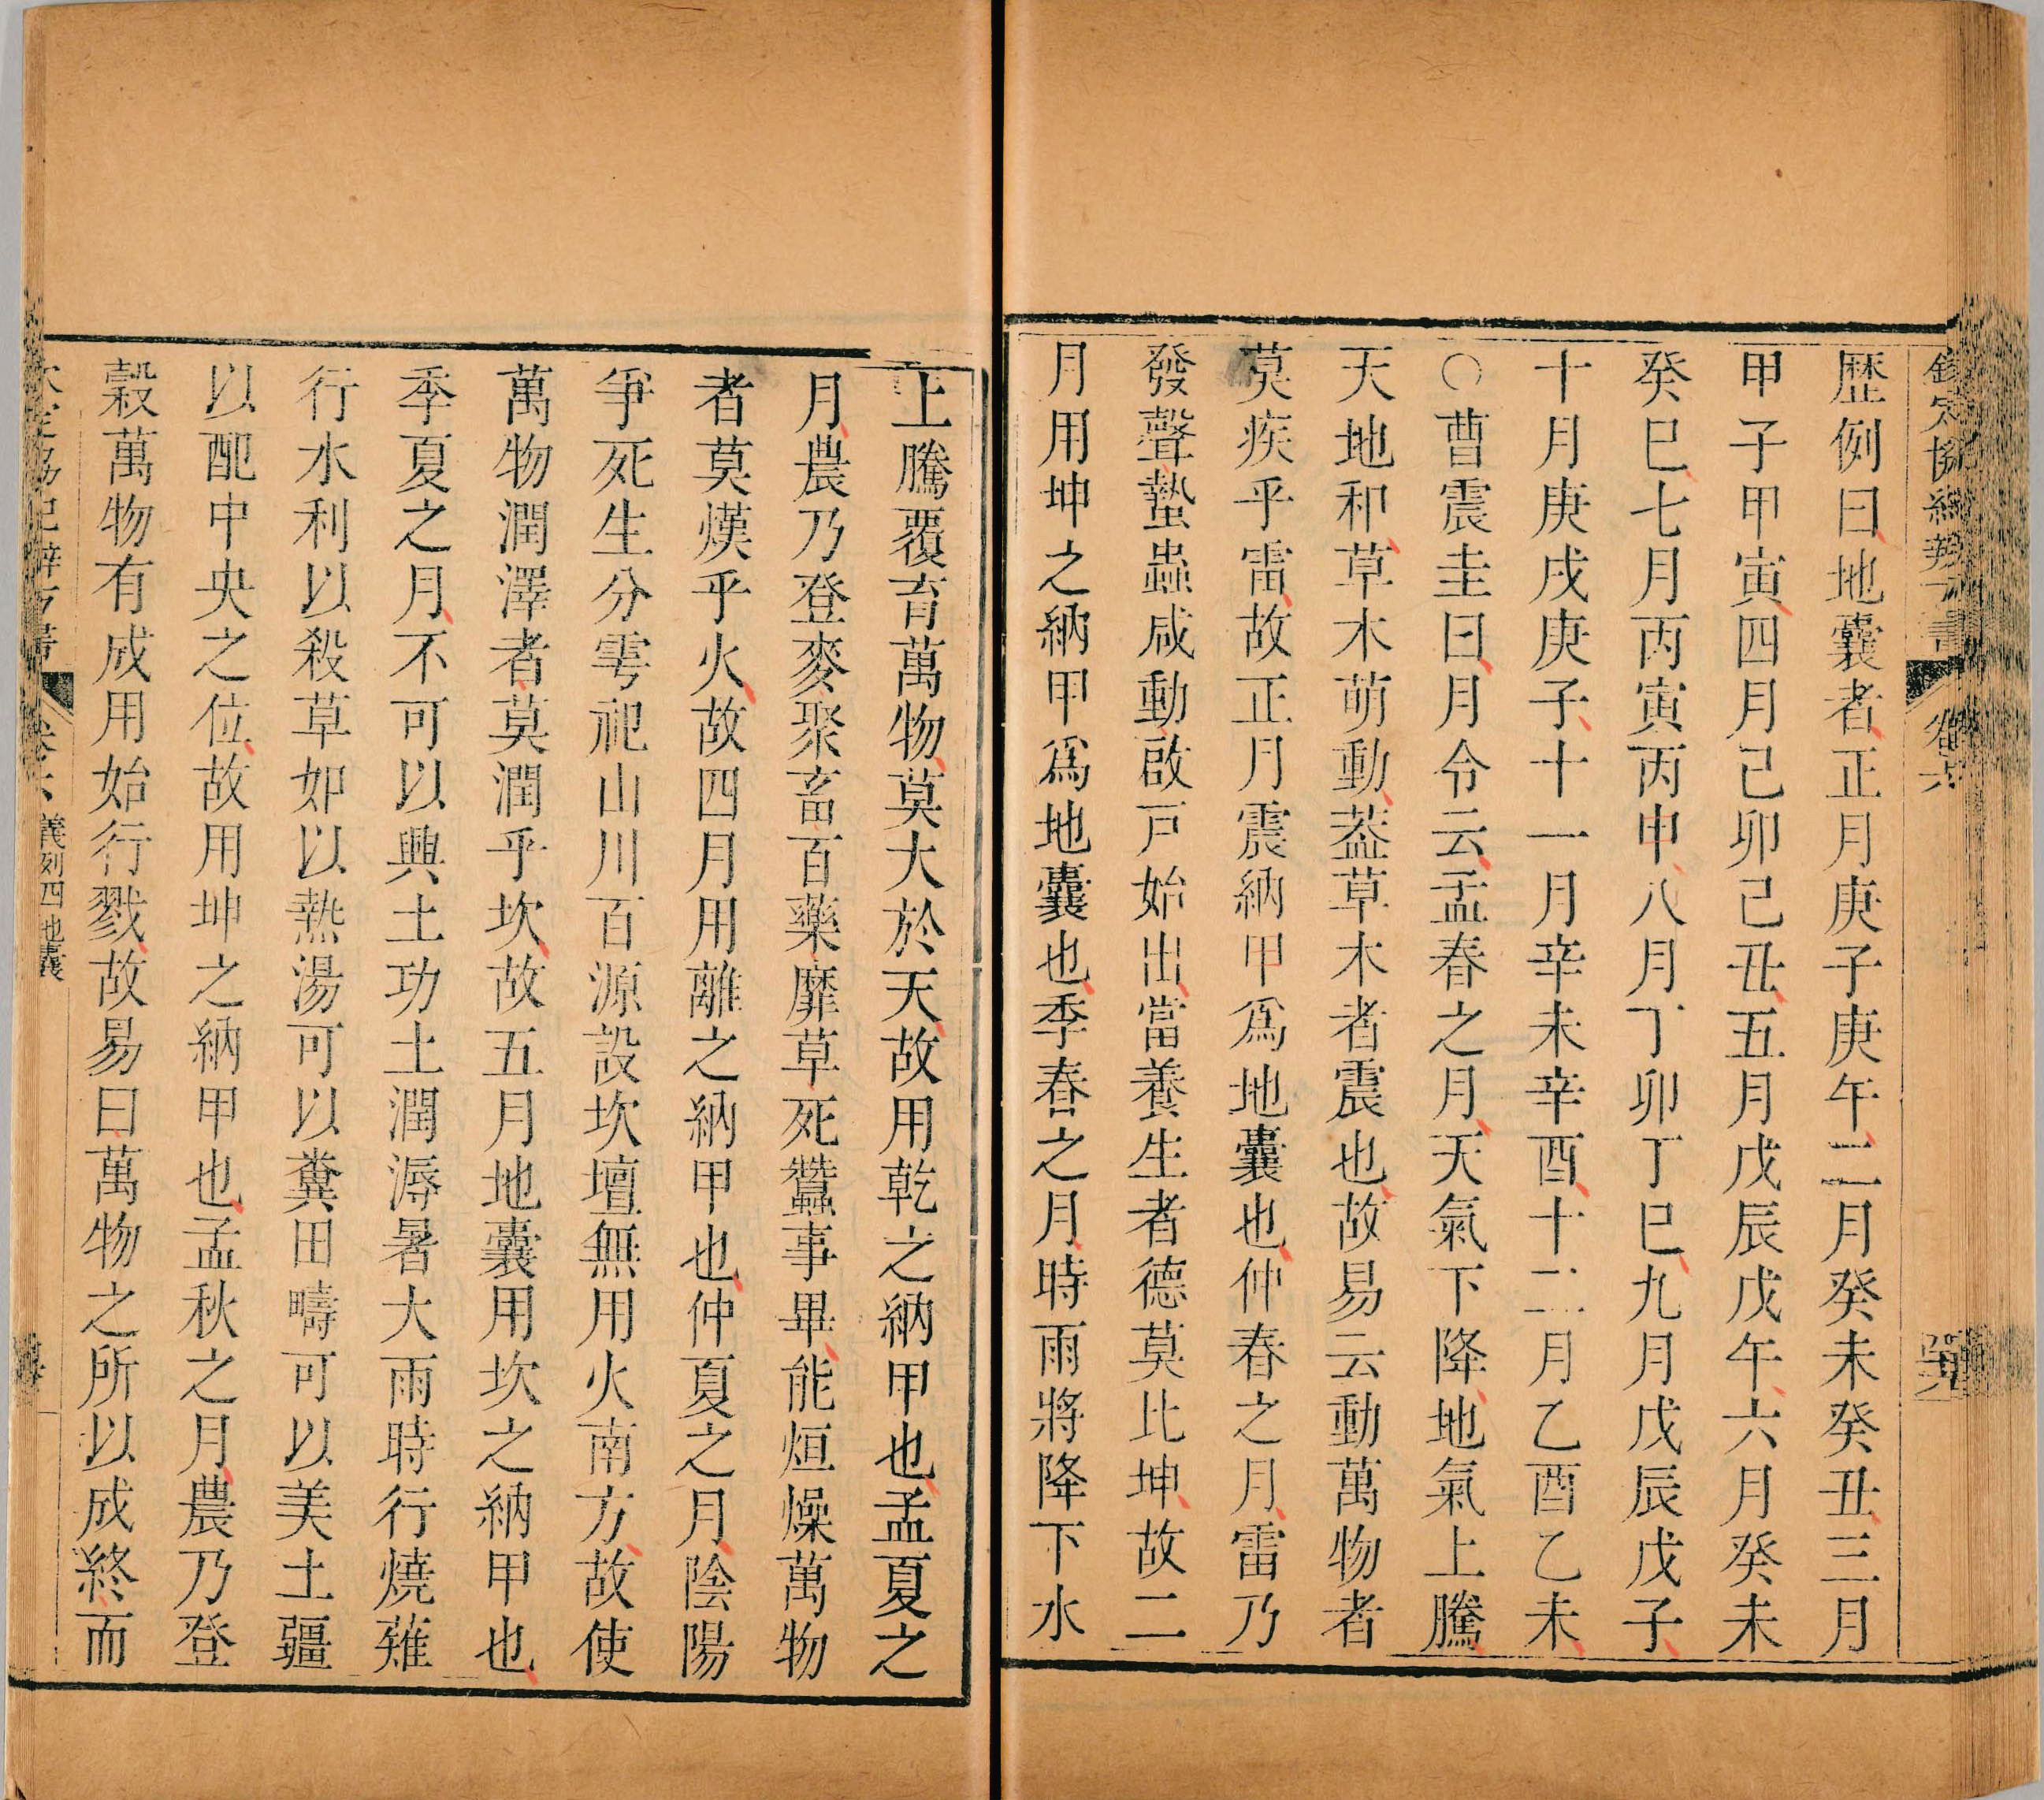 欽定協紀辨方書　卷六
歷例曰地囊者正月庚子庚午二月癸未癸丑三月
甲子甲寅四月己卯己丑五月戊辰戊午六月癸未
癸巳七月丙寅丙申八月丁卯丁巳九月戊辰戊子
十月庚戌庚子十一月辛未辛酉十二月乙酉乙未
○曹震圭曰月令云孟春之月天氣下降地氣上騰
天地和草木萌動葢草木者震也故易云動萬物者
莫疾乎雷故正月震納甲爲地囊也仲春之月雷乃
發聲蟄蟲咸動啟戸始出當養生者德莫比坤故二
月用坤之納甲爲地囊也季春之月時雨將降下水
上騰覆育萬物莫大於天故用乾之納甲也孟夏之
月農乃登麥聚畜百藥靡草死蠶事畢能烜燥萬物
者莫熯乎火故四月用離之納甲也仲夏之月陰陽
爭死生分雩祀山川百源設坎壇無用火南方故使
萬物潤澤者莫潤乎坎故五月地囊用坎之納甲也
季夏之月不可以興土功土潤溽暑大雨時行燒薙
行水利以殺草如以熱湯可以糞田疇可以美土疆
以配中央之位故用坤之納甲也孟秋之月農乃登
穀萬物有成用始行戮故易曰萬物之所以成終而
卷六　義例四地囊